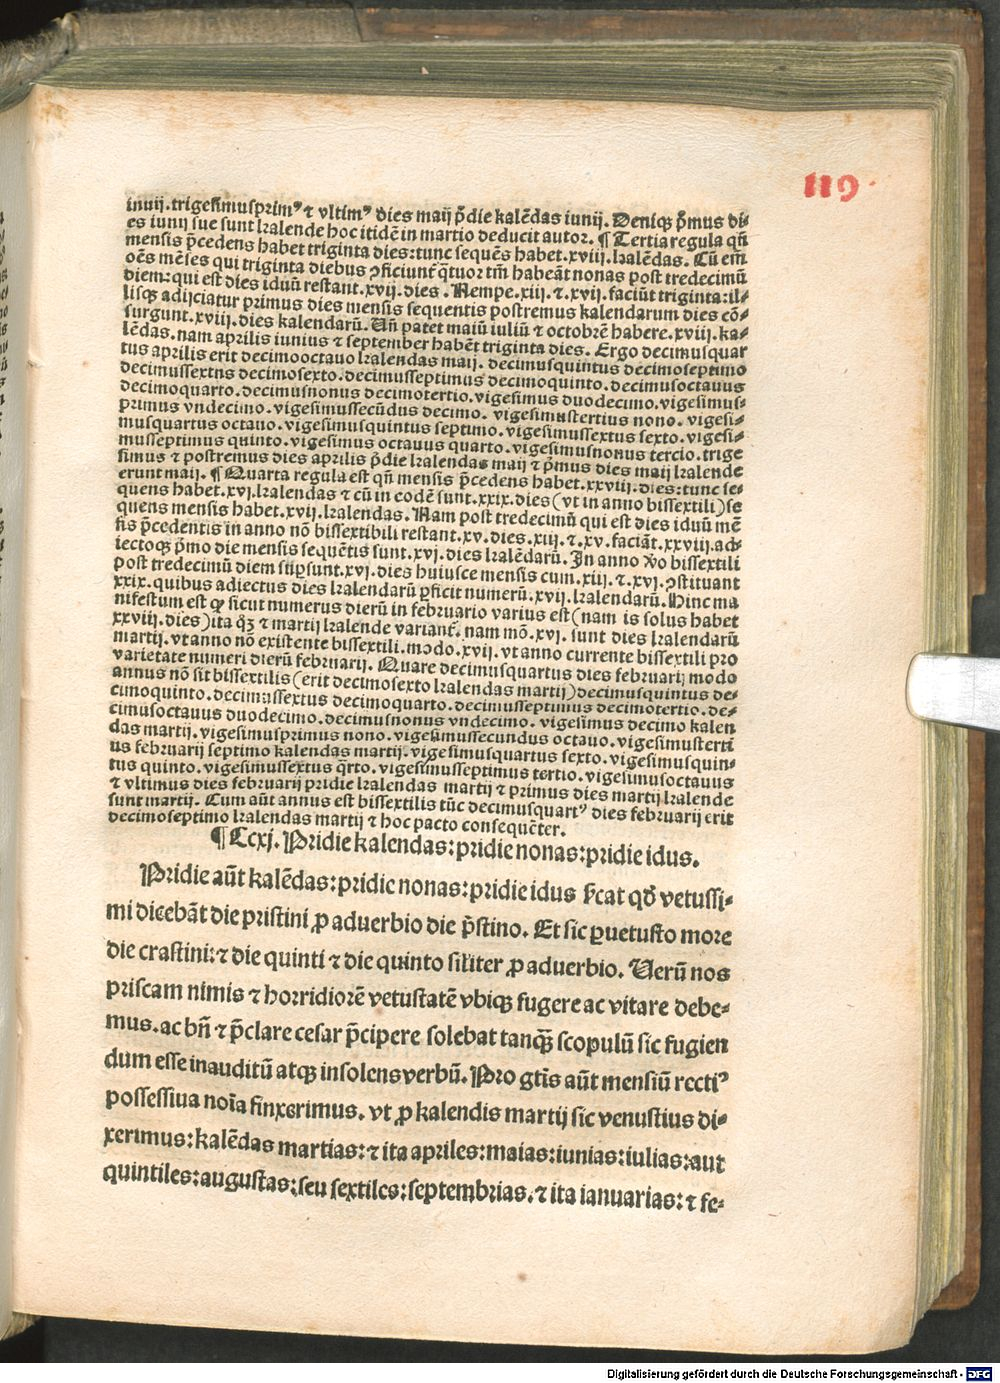 119
inuij. trigesimusprimꝰ ⁊ vltimꝰ dies maij p̄die kalēdas iunij. Deniqꝫ p̄mus di⸗
es iunij sue sunt kalende hoc itidē in martio deducit autor. ¶ Tertia regula qn̄
mensis p̄cedens habet triginta dies: tunc sequēs habet. xviij. kalēdas. Cū em̄
oēs mēses qui triginta diebus ꝯficiunt̄ qͣtuor tm̄ habeāt nonas post tredecimū
diem: qui est dies iduū restant. xvij. dies. Nempe. xiij. ⁊. xvij. faciūt triginta: il⸗
lisqꝫ adijciatur primus dies mensis sequentis postremus kalendarum dies cō⸗
surgunt. xviij. dies kalendarū. Un̄ patet maiū iuliū ⁊ octobrē habere. xviij. ka⸗
lēdas. nam aprilis iunius ⁊ september habēt triginta dies. Ergo decimusquar
tus aprilis erit decimooctauo kalendas maij. decimusquintus decimoseptimo
decimussextns decimosexto. decimusseptimus decimoquinto. decimusoctauus
decimoquarto. decimusnonus decimotertio. vigesimus duodecimo. vigesimus⸗
primus vndecimo. vigesimussecūdus decimo. vigesimustertius nono. vigesi⸗
musquartus octauo. vigesimusquintus septimo. vigesimussextus sexto. vigesi⸗
musseptimus quinto. vigesimus octauus quarto. vigesimusnonus tercio. trige
simus ⁊ postremus dies aprilis p̄die kalendas maij ⁊ p̄mus dies maij kalende
erunt maij. ¶ Quarta regula est qn̄ mensis p̄cedens habet. xxviij. dies: tunc se⸗
quens habet. xvj. kalendas ⁊ cū in eodē sunt. xxix. dies (vt in anno bissextili) se
quens mensis habet. xvij. kalendas. Nam post tredecimū qui est dies iduū mē
sis p̄cedentis in anno nō bissextibili restant. xv. dies. xiij. ⁊. xv. faciāt. xxviij. ad⸗
iectoqꝫ p̄mo die mensis sequētis sunt. xvj. dies kalēdarū. In anno v̄o bissextili
post tredecimū diem supsunt. xvj. dies huiusce mensis cum. xiij. ⁊. xvj. ꝯstituant
xxix. quibus adiectus dies kalendarū ꝑficit numerū. xvij. kalendarū. Hinc ma
nifestum est qꝙ sicut numerus dierū in februario varius est (nam is solus habet
xxviij. dies) ita qꝫ ⁊ martij kalende variant̄. nam mō. xvj. sunt dies kalendarū
martij. vt anno nō existente bissextili. modo. xvij. vt anno currente bissextili pro
varietate numeri dierū februarij. Quare decimusquartus dies februarij modo
annus nō sit bissextilis (erit decimosexto kalendas martij) decimusquintus de⸗
cimoquinto. decimussextus decimoquarto. decimusseptimus decimotertio. de⸗
cimusoctauus duodecimo. decimusnonus vndecimo. vigesimus decimo kalen
das martij. vigesimusprimus nono. vigesimussecundus octauo. vigesimusterti
us februarij septimo kalendas martij. vigesimusquartus sexto. vigesimusquin⸗
tus quinto. vigesimussextus q̄rto. vigesimusseptimus tertio. vigesimusoctauus
⁊ vltimus dies februarij pridie kalendas martij ⁊ primus dies martij kalende
sunt martij. Cum aūt annus est bissextilis tūc decimusquartꝰ dies februarij erit
decimoseptimo kalendas martij ⁊ hoc pacto consequēter.
¶ Ccxj. Pridie kalendas: pridie nonas: pridie idus.
Pridie aūt kalēdas: pridie nonas: pridie idus s̄cat qd̄ vetussi⸗
mi dicebāt die pristini ꝓ aduerbio die p̄stino. Et sic ꝑuetusto more
die crastini: ⁊ die quinti ⁊ die quinto siliter ꝓ aduerbio. Uerū nos
priscam nimis ⁊ horridiorē vetustatē vbiqꝫ fugere ac vitare debe⸗
mus. ac bn̄ ⁊ p̄clare cesar p̄cipere solebat tanqꝫ̄ scopulū sic fugien
dum esse inauditū atqꝫ insolens verbū. Pro gtīs aūt mensiū rectiꝰ
possessiua noīa finxerimus. vt ꝓ kalendis martij sic venustius di⸗
xerimus: kalēdas martias: ⁊ ita apriles: maias: iunias: iulias: aut
quintiles: augustas: seu sextiles: septembrias. ⁊ ita ianuarias: ⁊ fe⸗
Digitalisierung gefördert durch die Deutsche Forschungsgemeinschaft - DFG